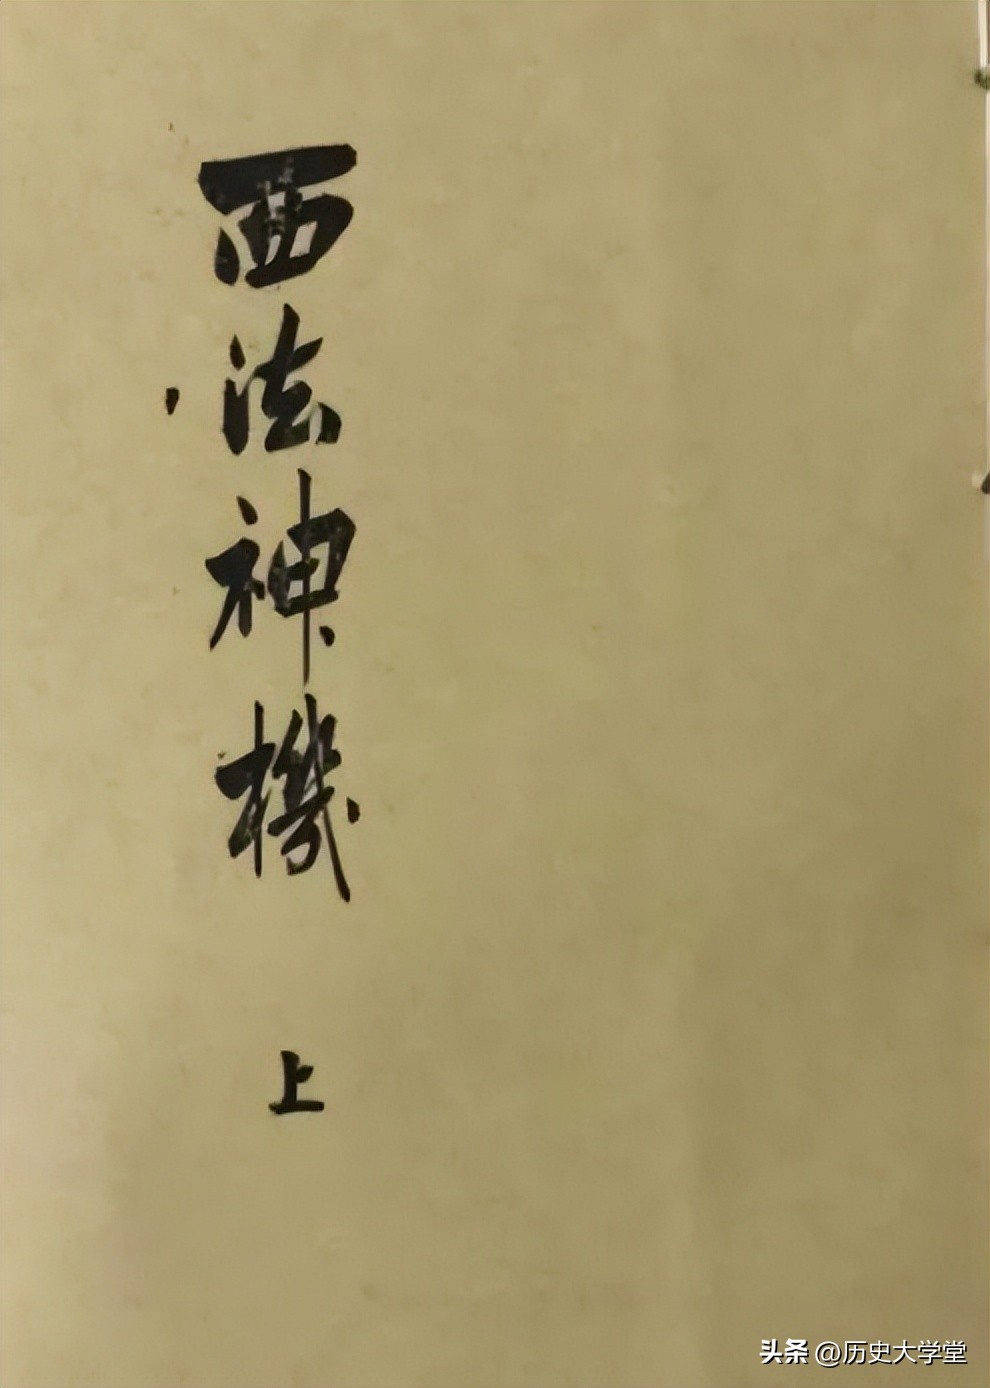 西法神機
上
头条 @历史大学堂